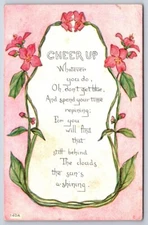 CHEER UP
Whatever
you do,
Oh don't get blue,
And spend your time
repining;
For you
will find
that
still behind
The clouds
the sun's
a-shining.